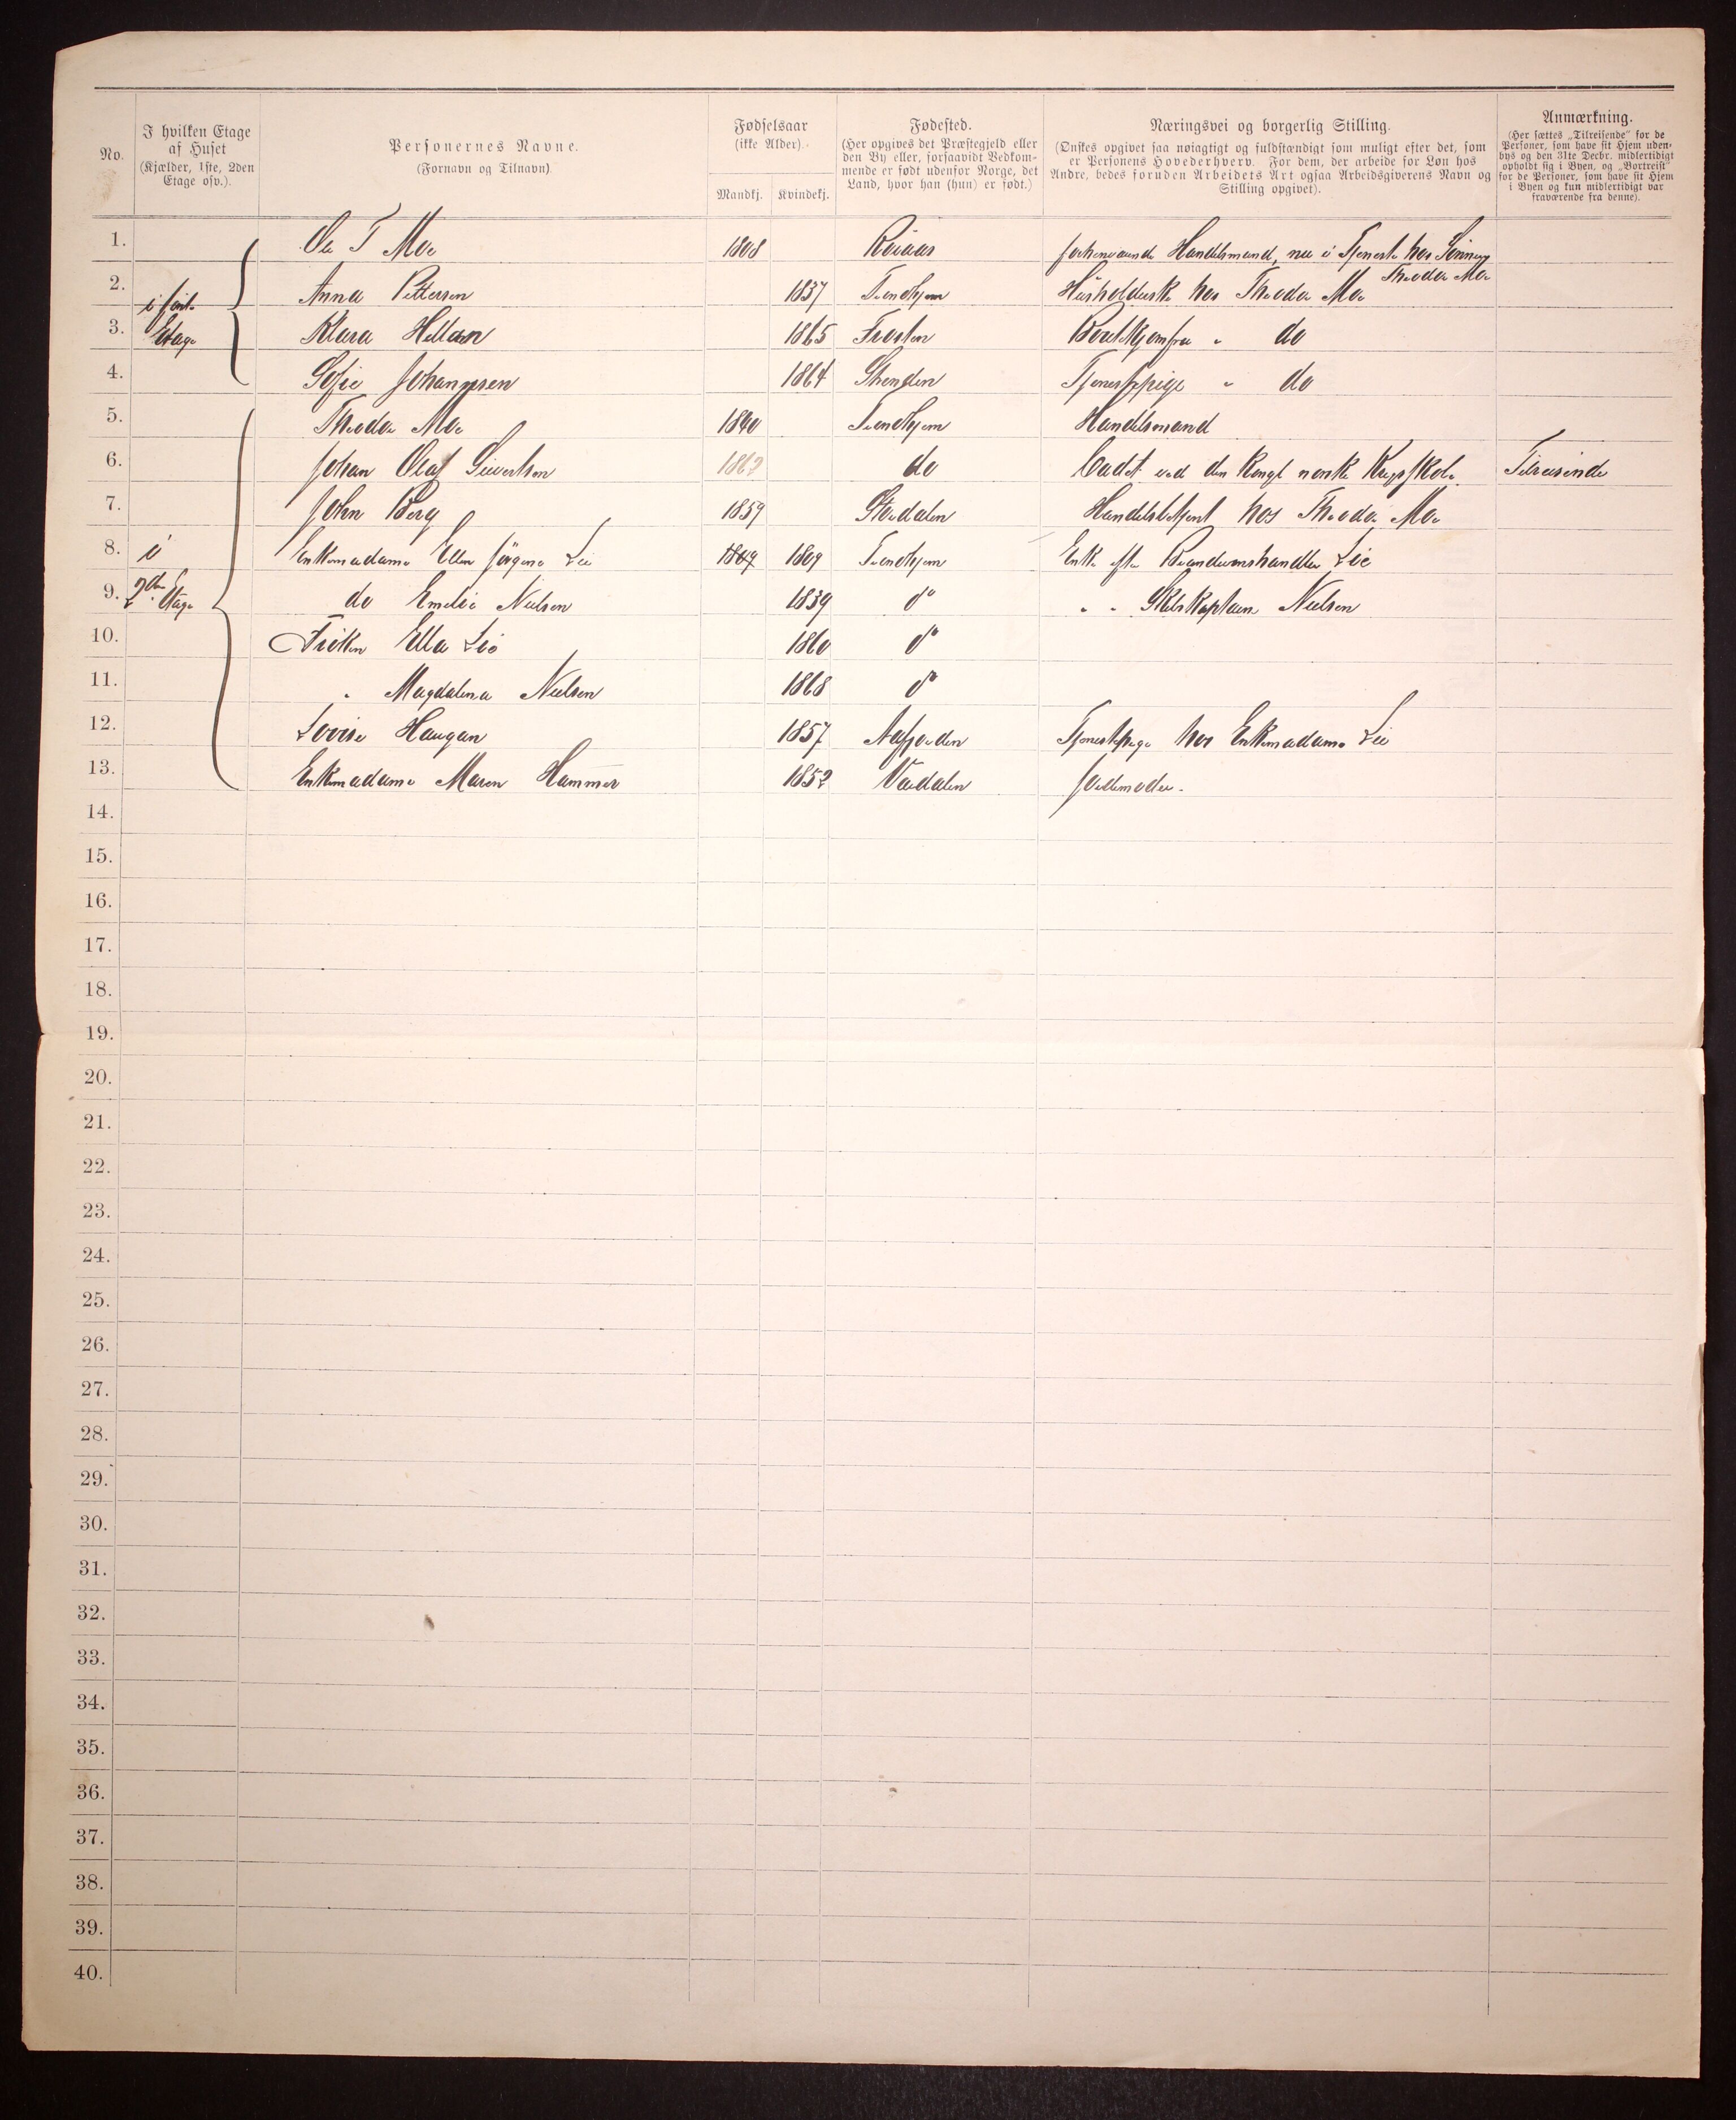 No.
I hvilken Etage
af Huset
(Kjælder, 1ste, 2den
Etage osv.).
Personernes Navne.
(Fornavn og Tilnavn)
Fødselsaar
(ikke Alder).
Mandkj. Kvindekj.
Fødested.
(Her opgives det Præstegjeld eller
den By eller, forsaavidt Vedkom-
mende er født udenfor Norge, det
Land, hvor han (hun) er født.)
Næringsvei og borgerlig Stilling.
(Ønskes opgivet saa nøiagtigt og fuldstændigt som muligt efter det, som
er Personens Hovederhverv. For dem, der arbeide for Løn hos
Andre, bedes foruden Arbeidets Art ogsaa Arbeidsgiverens Navn og
Stilling opgivet).
Anmærkning.
(Her sættes „Tilreisende“ for de
Personer, som have sit Hjem uden-
bys og den 31te Decbr. midlertidigt
opholdt sig i Byen, og „Bortreist“
for de Personer, som have sit Hjem
i Byen og kun midlertidigt var
fraværende fra denne).
1. Ole T Moe 1808 Røraas forhenværende Handelsmand, nu i Tjeneste hos Sønnen
Theodor Moe
2. i første Anna Pettersen 1837 Trondhjem Husholderske hos Theodor Moe
3. Etage Klara Hellan 1865 Frosten Boutikjomfru " do
4. Sofie Johannesen 1864 Strinden Tjenestepige " do
5. Theodor Moe 1840 Trondhjem Handelsmand
6. Johan Olaf Sivertsen 1862 do Cadet ved den Kongl norske Krigsskole Tilreisende
7. John Berg 1859 Størdalen Handelsbetjent hos Theodor Moe
8. i Enkemadame Ellen Jørgine Lie 1809 1809 Trondhjem Enke efter Brændevinshandler Lie
9. 2den Etage do Emelie Nielsen 1839 do " " Skibskaptein Nielsen
10. Frøken Ella Lie 1860 do
11. " Magdalena Nielsen 1868 do
12. Lovise Haugan 1857 Aafjorden Tjenestepige hos Enkemadame Lie
13. Enkemadame Maren Hammer 1852 Værdalen Jordemoder.
14.
15.
16.
17.
18.
19.
20.
21.
22.
23.
24.
25.
26.
27.
28.
29.
30.
31.
32.
33.
34.
35.
36.
37.
38.
39.
40.